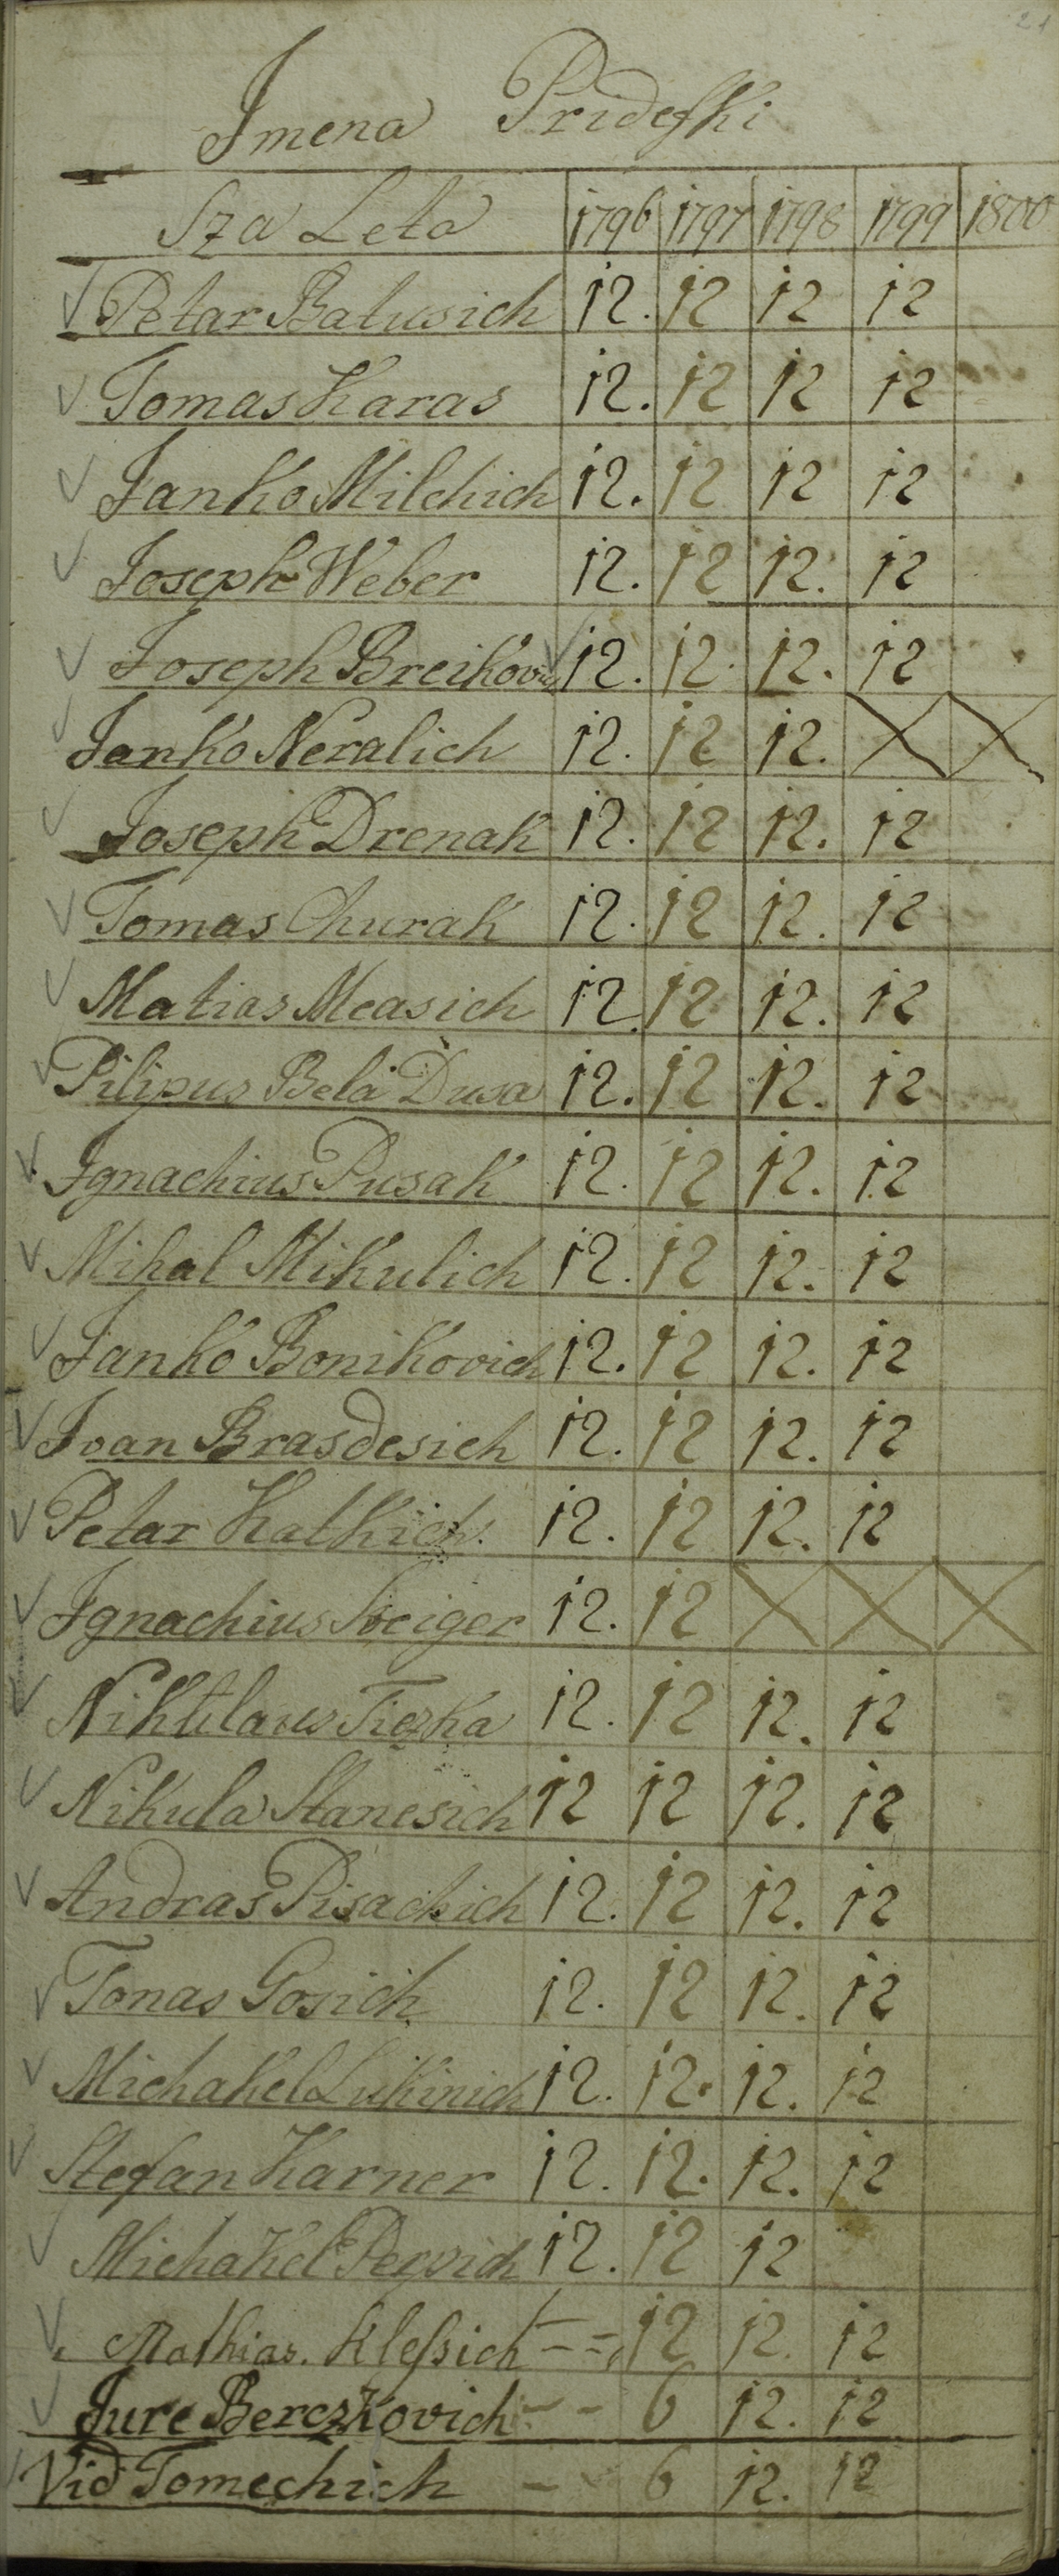 21
Imena Prideski
Sza Leta 1796 1797 1798 1799 1800
Petar Balusich 12. 12 12 12
Tomas Karas 12. 12 12 12
Janko Milchich 12. 12 12 12
Joseph Weber 12. 12 12. 12
Joseph Breikovich 12. 12. 12. 12
Janko Neralich 12. 12 12.
Joseph Drenak 12. 12 12. 12
Tomas Churak 12. 12 12. 12
Matias Measich 12. 12 12. 12
Pilipus Bela Dusa 12. 12 12. 12
Ignachius Pusak 12. 12 12. 12
Mihal Mikulich 12. 12 12. 12
Janko Bonikovich 12. 12 12. 12
Ivan Brasdesich 12. 12 12. 12
Petar Katkich 12. 12 12. 12
Ignachius Sveiger 12. 12
Nikulaus Tiezka 12. 12 12. 12
Nikula Stanesich 12 12 12. 12
Andras Pisachich 12. 12 12. 12
Tomas Gosich 12. 12 12. 12
Michakel Lukinich 12. 12. 12. 12
Stefan Karner 12. 12. 12. 12
Michakel Pervich 12. 12 12
Mathias. Klessich - - - 12 12. 12
Jure Berczkovich - - 6 12. 12
Vid Tomechich - - 6 12. 12